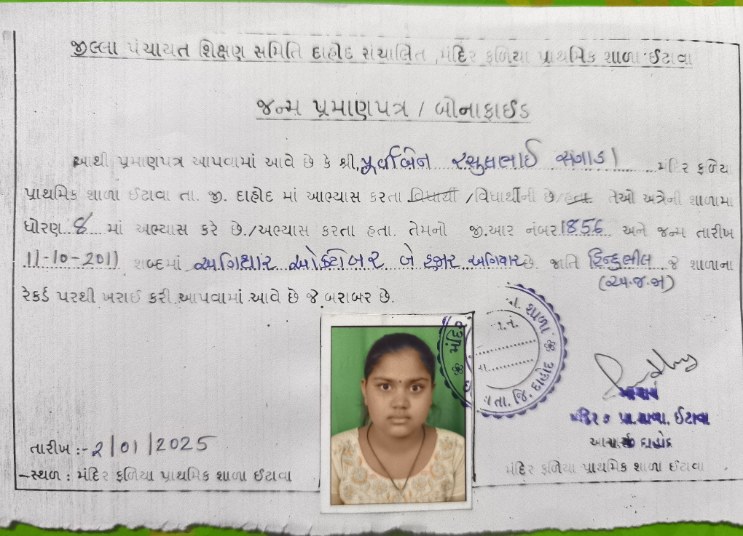 જીલ્લા પંચાયત શિક્ષણ સમિતિ દાહોદ સંચાલિત, મંદિર ફળિયા પ્રાથમિક શાળા ઈટાવા
જન્મ પ્રમાણપત્ર / બોનાફાઈડ
આથી પ્રમાણપત્ર આપવામાં આવે છે કે શ્રી. પૂર્વાબેન રસુલભાઈ સંગાડા મંદિર ફળિયા
પ્રાથમિક શાળા ઈટાવા તા. જી. દાહોદ માં આભ્યાસ કરતા વિધાર્થી /વિધાર્થીની છે/હતા તેઓ અત્રેની શાળામા
ધોરણ 8 માં અભ્યાસ કરે છે./અભ્યાસ કરતા હતા. તેમનો જી.આર નંબર 1856 અને જન્મ તારીખ
11-10-2011 શબ્દમાં અગિયાર ઓક્ટોબર બે હજાર અગિયાર છે. જાતિ હિન્દુભીલ જે શાળાના
(અ.જ.જા)
રેકર્ડ પરથી ખરાઈ કરી આપવામાં આવે છે જે બરાબર છે.
શાળા
તા. જિ. દાહોદ
આચાર્ય
મંદિર ફ પ્રા. શાળા. ઈટાવા
તારીખ :- 2/01/2025
આચાર્ય દાહોદ
સ્થળ : મંદિર ફળિયા પ્રાથમિક શાળા ઈટાવા
મંદિર ફળિયા પ્રાથમિક શાળા ઈટાવા